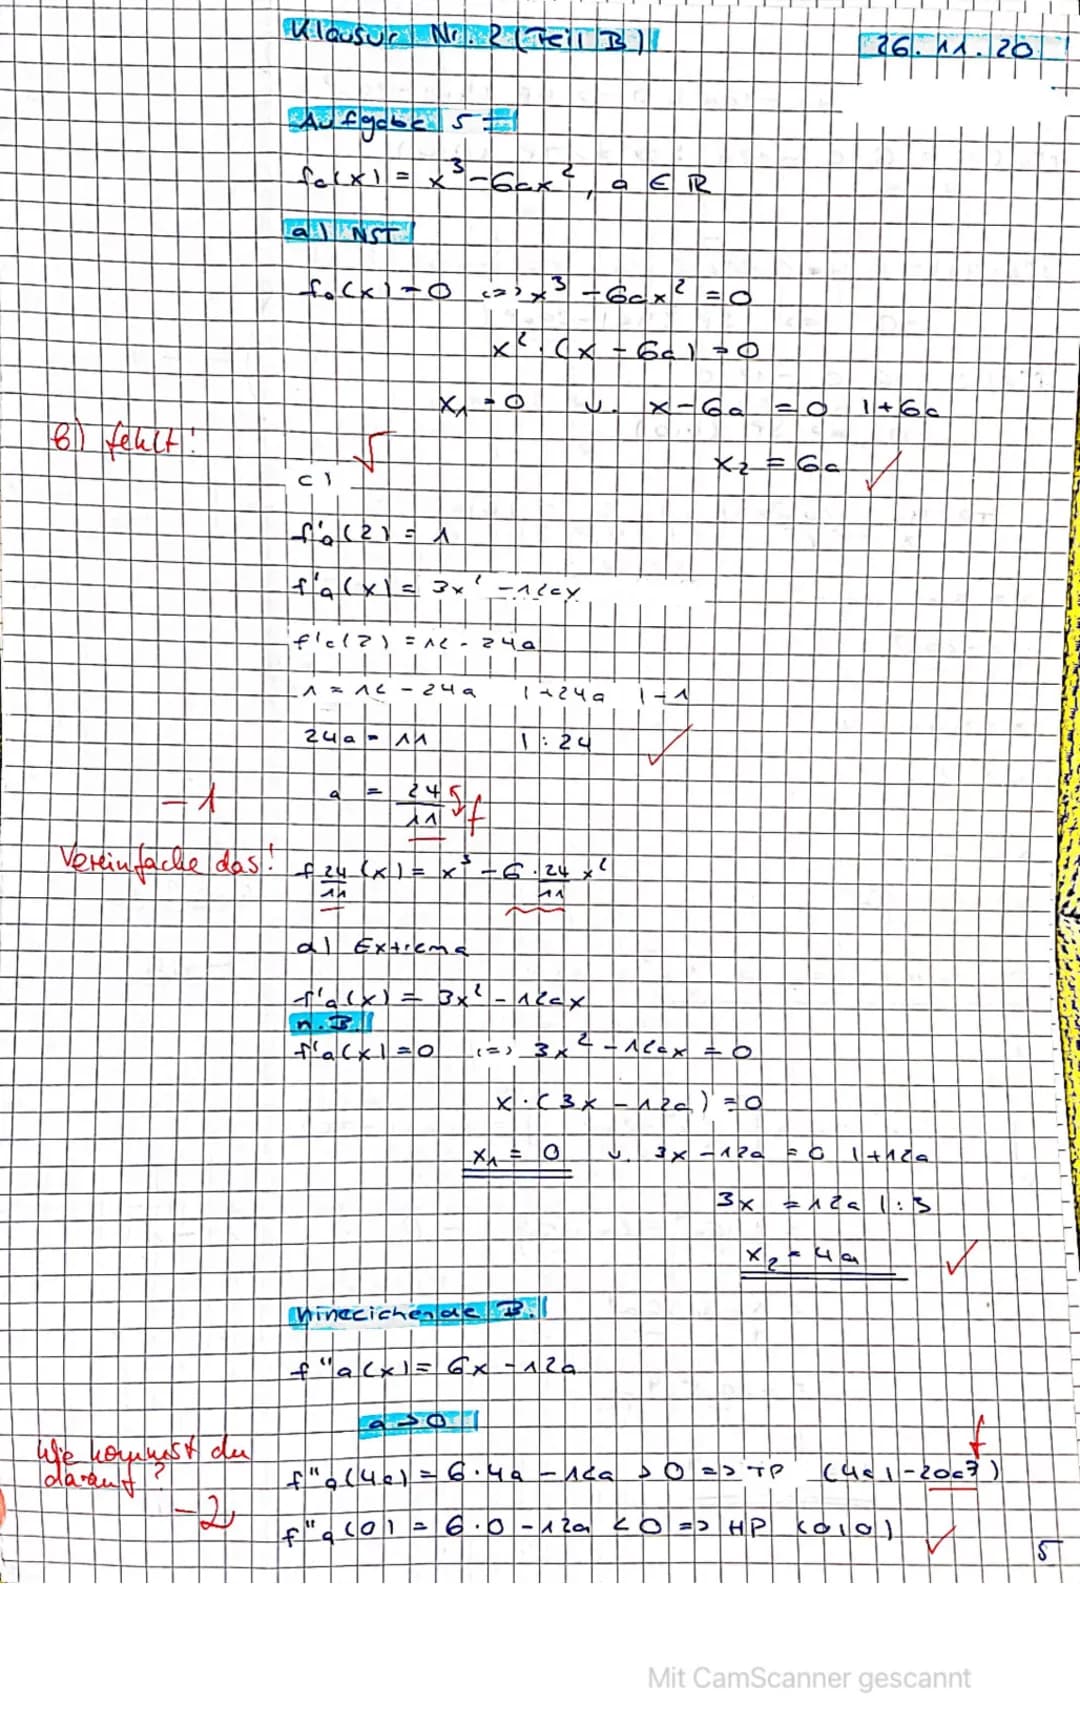 Klausur Nr. 2 (Teil B)
26.11.20
Aufgabe 5:
fa(x) = x³-6ax², a ∈ ℝ
a) NST
fa(x)=0 <=> x³-6ax² = 0
x²·(x-6a)=0
x₁=0 v. x-6a = 0 |+6a
b) fehlt!
x₂ = 6a ✓
c)
f'a(2) = 1
f'a(x) = 3x² -12ax
f'a(2) = 12 - 24a
1 = 12 - 24a |+24a |-1
24a = 11 |: 24 ✓
-1
a = 24/11 f
Vereinfache das!
f24/11(x) = x³ -6·24/11x²
d) Extrema
f'a(x) = 3x² - 12ax
n.B.
f'a(x)=0 <=> 3x² -12ax = 0
x·(3x -12a) = 0
x₁ = 0 v. 3x -12a = 0 |+12a
3x = 12a |:3
x₂ = 4a ✓
hinreichende B.
f"a(x) = 6x -12a
a > 0
Wie kommst du
darauf?
f
f"a(4a) = 6·4a -12a > 0 => TP (4a|-20a³)
-2
f"a(0) = 6·0 -12a < 0 => HP (0|0) ✓
5
Mit CamScanner gescannt